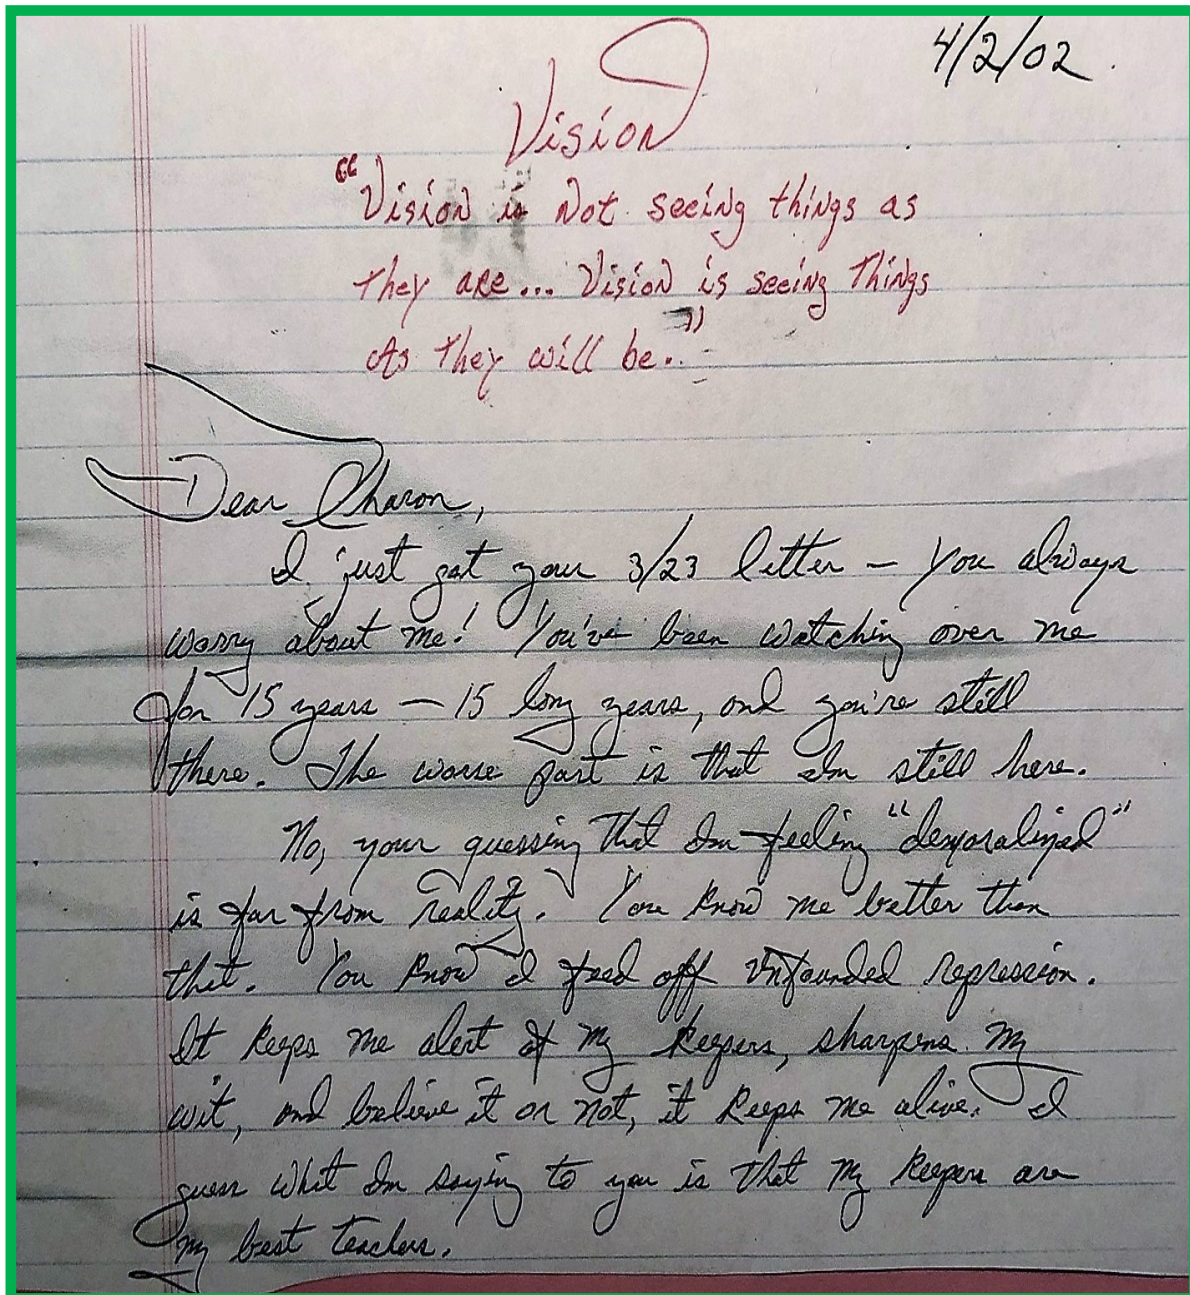 4/2/02.
Vision
"Vision is Not seeing things as
they are... Vision is seeing Things
As They will be.."
Dear Charon,
I just got your 3/23 letter – You always
worry about me! You've been watching over me
for 15 years – 15 long years, and you're still
there. The worse part is that Im still here.
No, your guessing that Im feeling "demoralized"
is far from reality. You know me better than
that. You know I feed off unfounded repression.
It keeps me alert of my keepers, sharpens my
wit, and believe it or not, it keeps me alive. I
guess what Im saying to you is that my keepers are
my best teachers.